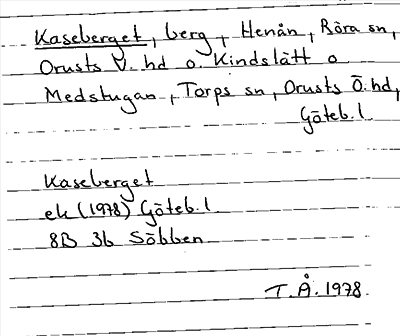 Kaseberget, berg, Henån, Röra sn,
Orusts V. hd o. Kindslätt o
Medstugan, Torps sn, Orusts Ö. hd,
Göteb. l
Kaseberget
ek (1978) Göteb. l
8B 3b Söbben
T.Å. 1978